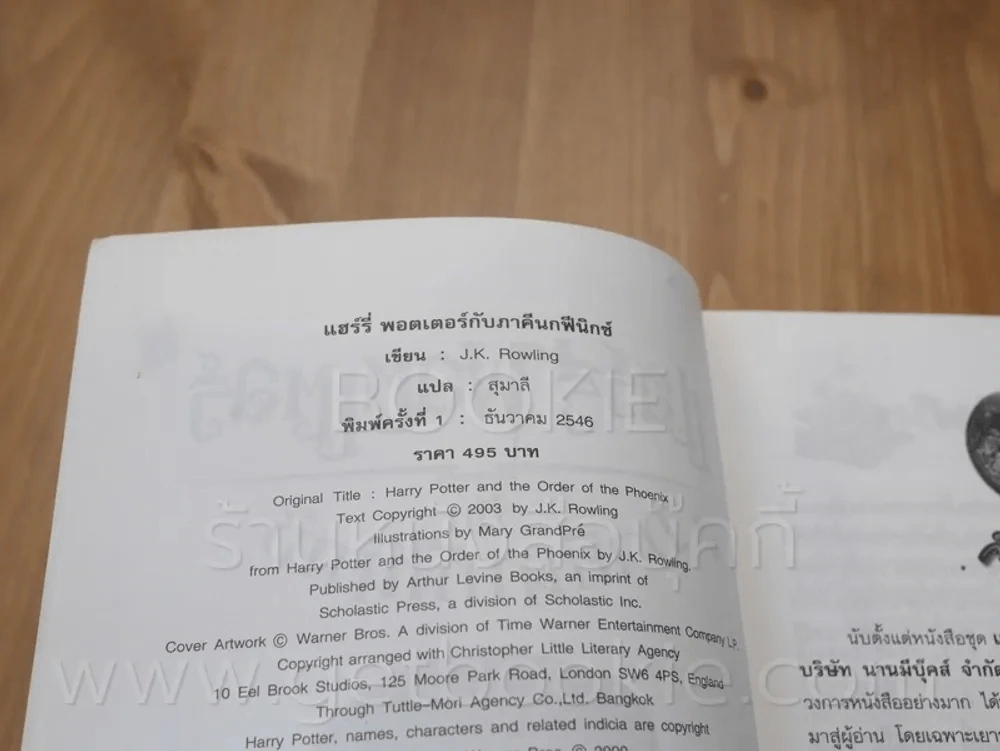 แฮร์รี่ พอตเตอร์กับภาคีนกฟีนิกซ์
เขียน : J.K. Rowling
แปล : สุมาลี
พิมพ์ครั้งที่ 1 : ธันวาคม 2546
ราคา 495 บาท
Original Title : Harry Potter and the Order of the Phoenix
Text Copyright © 2003 by J.K. Rowling
Illustrations by Mary GrandPré
from Harry Potter and the Order of the Phoenix by J.K. Rowling,
Published by Arthur Levine Books, an imprint of
Scholastic Press, a division of Scholastic Inc.
Cover Artwork © Warner Bros. A division of Time Warner Entertainment Company LP.
Copyright arranged with Christopher Little Literary Agency
10 Eel Brook Studios, 125 Moore Park Road, London SW6 4PS, England
Through Tuttle-Mori Agency Co.,Ltd. Bangkok
Harry Potter, names, characters and related indicia are copyright
นับตั้งแต่หนังสือชุด
บริษัท นานมีบุ๊คส์ จำกัด
วงการหนังสืออย่างมาก ได้
มาสู่ผู้อ่าน โดยเฉพาะเยา
BOOKIE
ร้านหนังสือบุ๊คกี้
www.getbookie.com